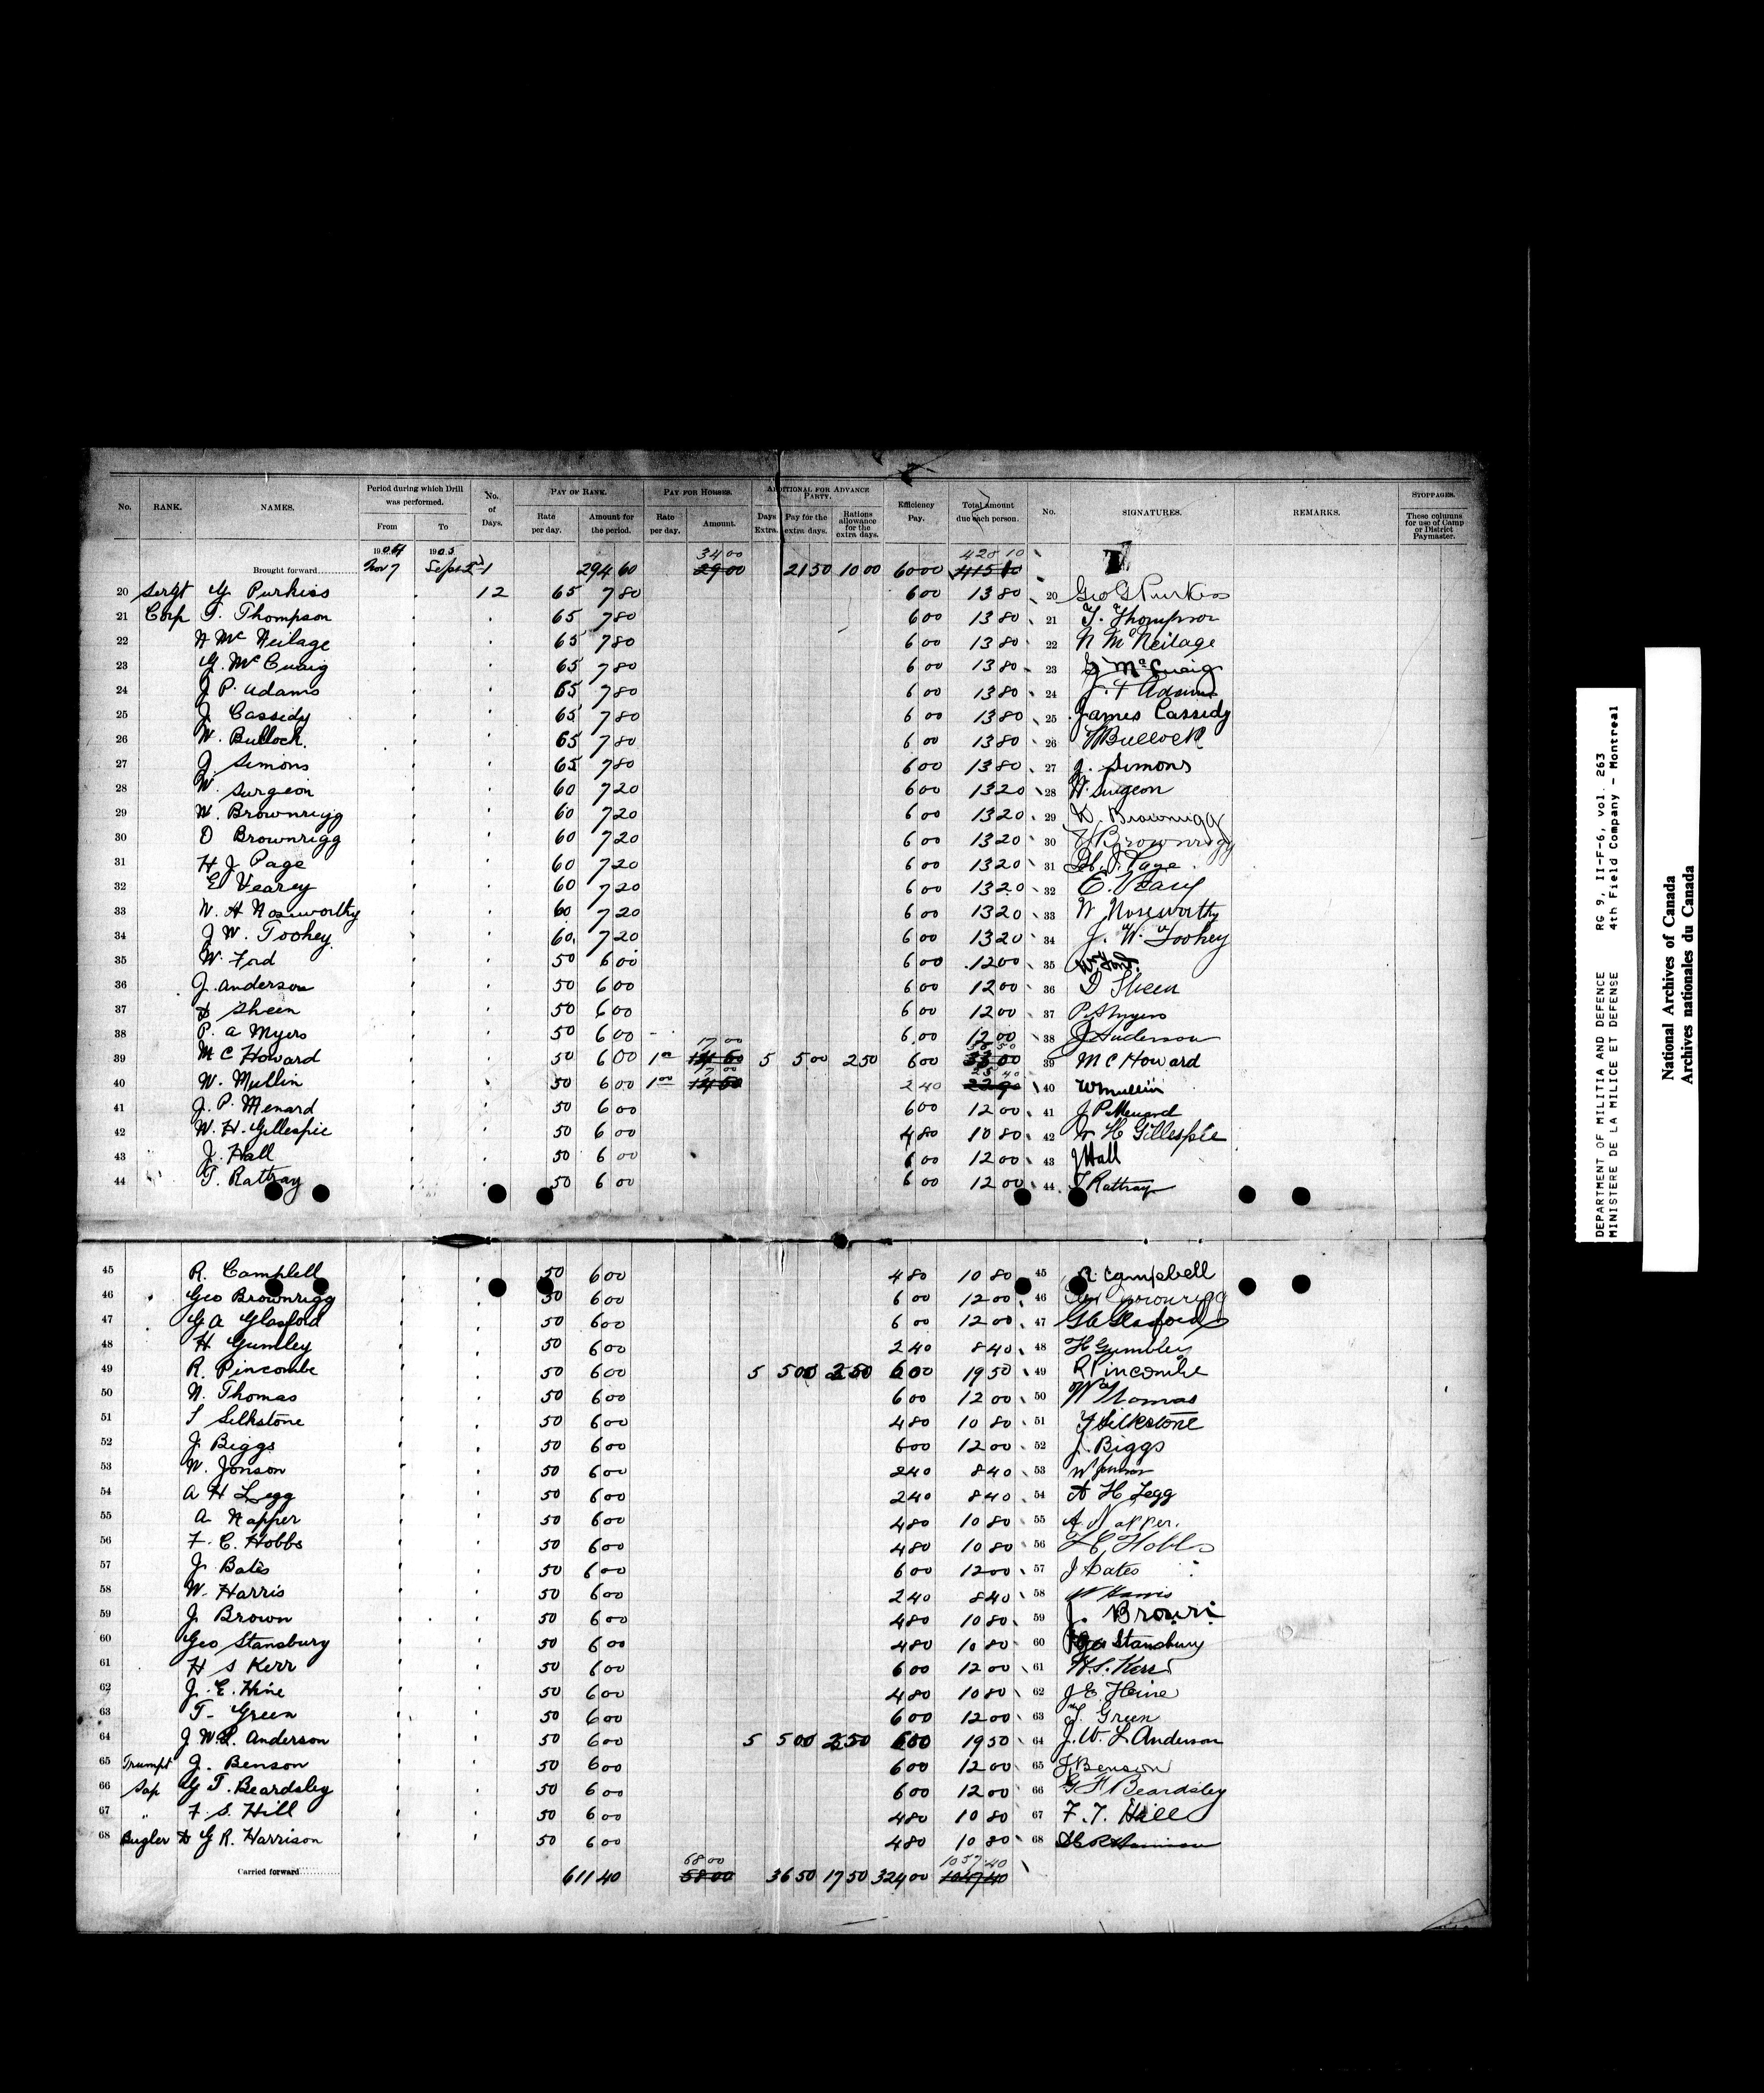 No. RANK. NAMES. Period during which Drill was performed. From To No. of Days. PAY OF RANK. Rate per day. Amount for the period. PAY FOR HORSES. Rate per day. Amount. ADDITIONAL FOR ADVANCE PARTY. Days Extra. Pay for the extra days. Rations allowance for the extra days. Efficiency Pay. Total amount due each person. No. SIGNATURES. REMARKS. STOPPAGES. These columns for use of Camp or District Paymaster.
1904 1905 34 00 420 10
Brought forward Nov 7 Sept 294 60 29 00 21 50 10 00 60 00 415 10
20 Sergt G Purkiss 12 65 7 80 6 00 13 80 20 Geo G Purkiss
21 Corp T. Thompson 65 7 80 6 00 13 80 21 T. Thompson
22 N Mc Neilage 65 7 80 6 00 13 80 22 N Mc Neilage
23 G. Mc Cuaig 65 7 80 6 00 13 80 23 G McCuaig
24 J P. Adams 65 7 80 6 00 13 80 24 J. P Adams
25 J. Cassidy 65 7 80 6 00 13 80 25 James Cassidy
26 W. Bullock. 65 7 80 6 00 13 80 26 W Bullock
27 J. Simons 65 7 80 6 00 13 80 27 J. Simons
28 W. Surgeon 60 7 20 6 00 13 20 28 W. Surgeon
29 W. Brownrigg 60 7 20 6 00 13 20 29 W. Brownrigg
30 D Brownrigg 60 7 20 6 00 13 20 30 Brownrigg
31 H J Page 60 7 20 6 00 13 20 31 H. J. Page
32 E Vearey 60 7 20 6 00 13 20 32 E. Veary
33 W. H Nosworthy 60 7 20 6 00 13 20 33 W Noseworthy
34 J W. Toohey. 60 7 20 6 00 13 20 34 J. W. Toohey
35 W. Ford 50 6 00 6 00 12 00 35 W Ford.
36 J. Anderson 50 6 00 6 00 12 00 36 D Sheen
37 D Sheen 50 6 00 6 00 12 00 37 P A Myers
38 P. A Myers 50 6 00 6 00 12 00 38 J Anderson
17 00
39 M C Howard 50 6 00 1 00 5 5 00 2 50 6 00 39 M C Howard
17 00 25 40
40 W. Mullin 50 6 00 1 00 2 40 40 W Mullin
41 J. P. Menard 50 6 00 6 00 12 00 41 J P Menard
42 W. H. Gillespie 50 6 00 4 80 10 80 42 W H Gillespie
43 J. Hall 50 6 00 6 00 12 00 43 J Hall
44 T. Rattray 50 6 00 6 00 12 00 44 T Rattray
45 R. Campbell 50 6 00 4 80 10 80 45 R Campbell
46 Geo Brownrigg 50 6 00 6 00 12 00 46 Geo Brownrigg
47 G A Glasford 50 6 00 6 00 12 00 47 G A Glasford
48 H Gumley 50 6 00 2 40 8 40 48 H Gumbley
49 R. Pincombe 50 6 00 5 5 00 2 50 6 00 19 50 49 R Pincombe
50 W. Thomas 50 6 00 6 00 12 00 50 W Thomas
51 T Silkstone 50 6 00 4 80 10 80 51 T Silkstone
52 J. Biggs 50 6 00 6 00 12 00 52 J. Biggs
53 W. Jonson 50 6 00 2 40 8 40 53
54 A H Legg 50 6 00 2 40 8 40 54 A H Legg
55 A Napper 50 6 00 4 80 10 80 55 A. Napper.
56 F. C. Hobbs 50 6 00 4 80 10 80 56 F C Hobbs
57 J. Bates 50 6 00 6 00 12 00 57 J Bates
58 W. Harris 50 6 00 2 40 8 40 58 W Harris
59 J. Brown 50 6 00 4 80 10 80 59 J. Brown
60 Geo Stansbury 50 6 00 4 80 10 80 60 Geo Stansbury
61 H S Kerr 50 6 00 6 00 12 00 61 H. S. Kerr
62 J. E. Hine 50 6 00 4 80 10 80 62 J E. Heine
63 T. Green 50 6 00 6 00 12 00 63 T. Green
64 J W L. Anderson 50 6 00 5 5 00 2 50 6 00 19 50 64 J. W. L Anderson
65 Trumpt J. Benson 50 6 00 6 00 12 00 65 J. Benson
66 Sap G T. Beardsley 50 6 00 6 00 12 00 66 G F Beardsley
67 " F. S. Hill 50 6 00 4 80 10 80 67 F. T. Hill
68 Bugler G R. Harrison 50 6 00 4 80 10 80 68
68 00 1057.40
Carried forward 611 40 58 00 36 50 17 50 324 00 1047 40
DEPARTMENT OF MILITIA AND DEFENCE RG 9, II-F-6, vol. 263
MINISTERE DE LA MILICE ET DEFENSE 4th Field Company - Montreal
National Archives of Canada
Archives nationales du Canada